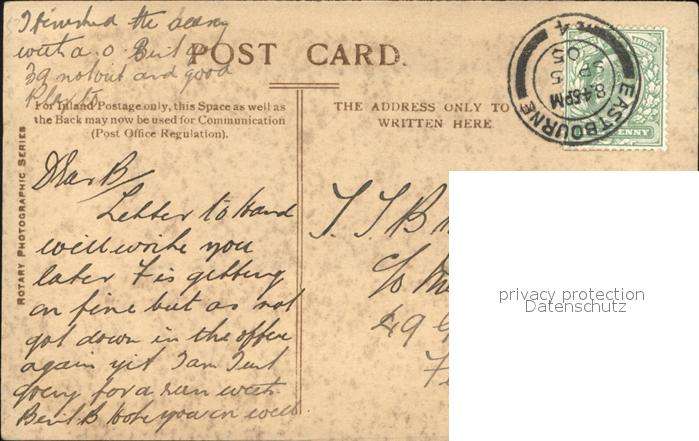 I finished the season
with a 0. Best
39 not out and good
POST CARD.
For Inland Postage only, this Space as well as
the Back may now be used for Communication
(Post Office Regulation).
THE ADDRESS ONLY TO
WRITTEN HERE
ROTARY PHOTOGRAPHIC SERIES
EASTBOURNE
8.45PM
SP 5
05
4
PENNY
Dear B/
Letter to hand
will write you
later F is getting
on fine but as not
got down in the office
again yet I am just
going for a run with
Bert. B hope you are well
T. T. B
c/o
29
privacy protection
Datenschutz